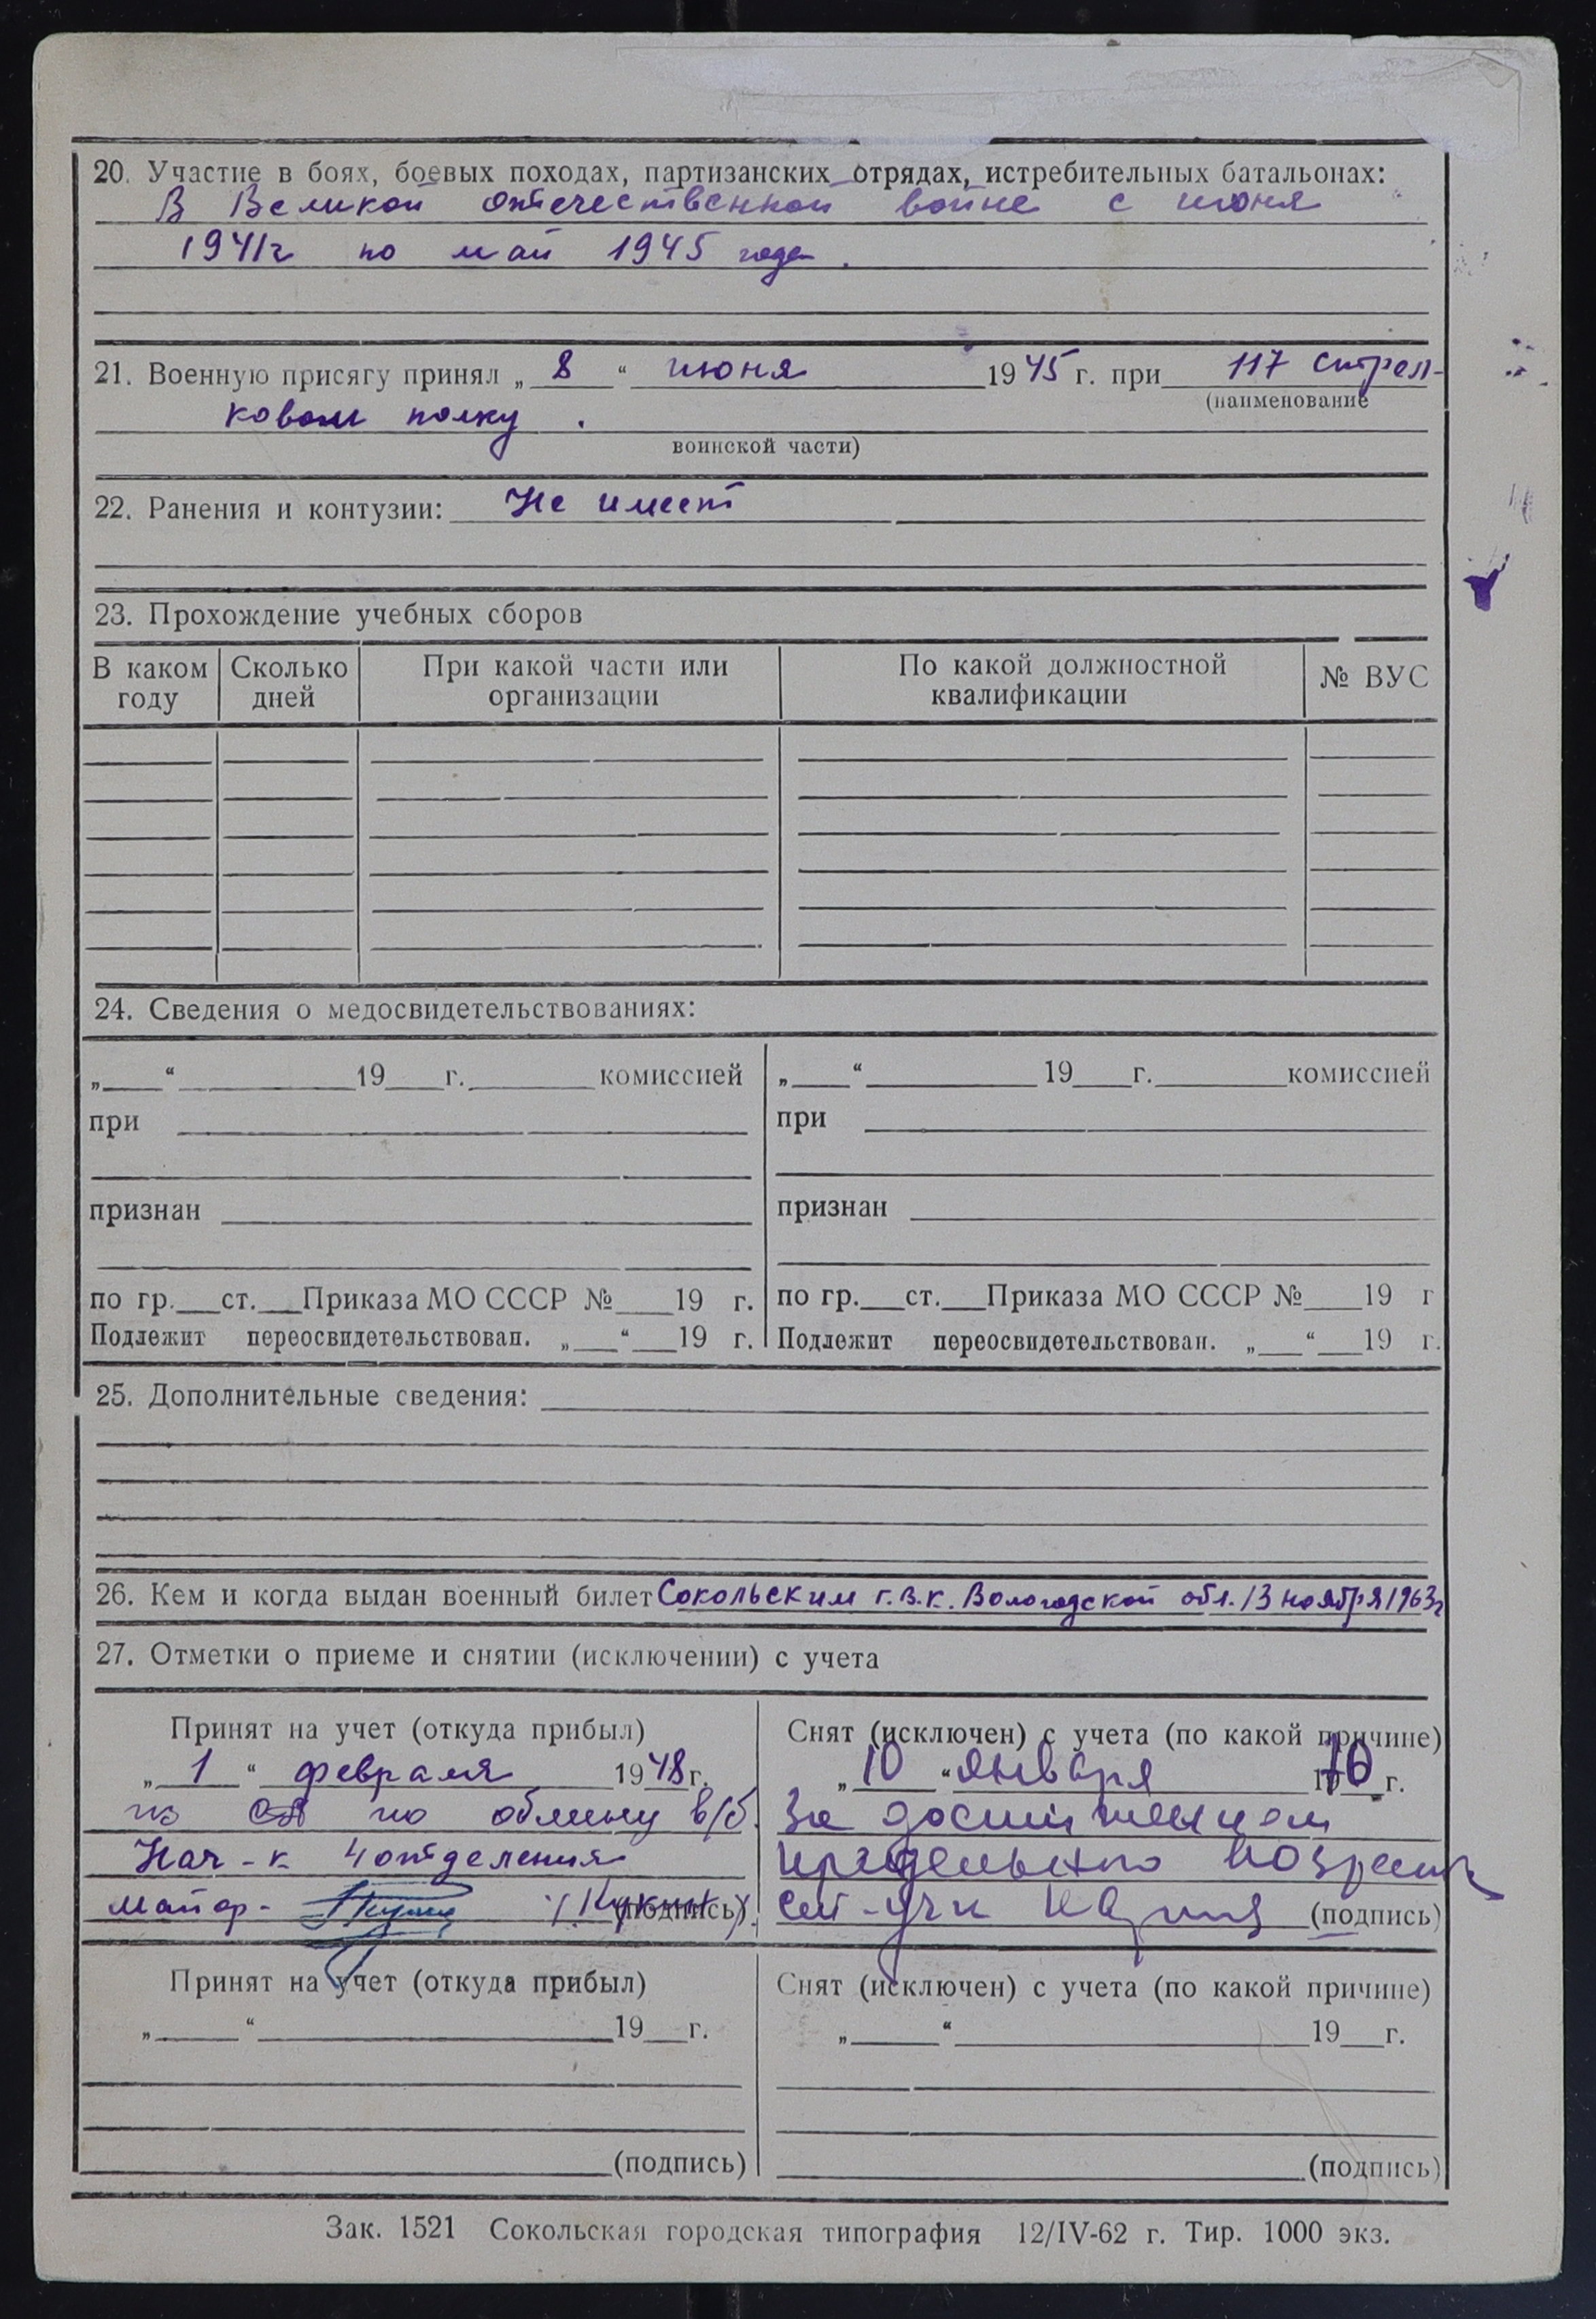 20. Участие в боях, боевых походах, партизанских отрядах, истребительных батальонах:
В Великой отечественной войне с июня
1941г по май 1945 года.
21. Военную присягу принял „ 8 “ июня 1945 г. при 117 стрел-
(наименование
ковом полку .
воинской части)
22. Ранения и контузии: Не имеет
23. Прохождение учебных сборов
В каком году
Сколько дней
При какой части или организации
По какой должностной квалификации
№ ВУС
24. Сведения о медосвидетельствованиях:
„___“ ___ 19___г. ___ комиссией
при
признан
по гр.___ст.___Приказа МО СССР №___19 г.
Подлежит переосвидетельствован. „___“___19 г.
„___“ ___ 19___г. ___ комиссией
при
признан
по гр.___ст.___Приказа МО СССР №___19 г
Подлежит переосвидетельствован. „___“___19 г.
25. Дополнительные сведения:
26. Кем и когда выдан военный билет Сокольским г.в.к. Вологодской обл. 13 ноября 1963г
27. Отметки о приеме и снятии (исключении) с учета
Принят на учет (откуда прибыл)
„ 1 “ февраля 1948г.
из СА по обмену в/б.
Нач-к 4 отделения
майор- /Кукин/ (подпись)
Снят (исключен) с учета (по какой причине)
„ 10 “ января 1970 г.
За достижением
предельного возраста
(подпись)
Принят на учет (откуда прибыл)
„___“ ___ 19___г.
(подпись)
Снят (исключен) с учета (по какой причине)
„___“ ___ 19___г.
(подпись)
Зак. 1521 Сокольская городская типография 12/IV-62 г. Тир. 1000 экз.